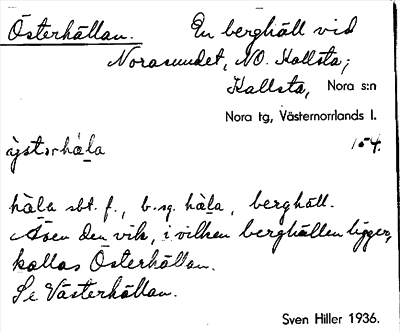 Österhällan. En berghäll vid
Norasundet, NO. Kallsta,
Kallsta, Nora s:n
Nora tg, Västernorrlands l.
154.
häla sbt. f., b.sg. häla, berghäll.
Även den vik, i vilken berghällen ligger,
kallas Österhällan.
Se Västerhällan.
Sven Hiller 1936.